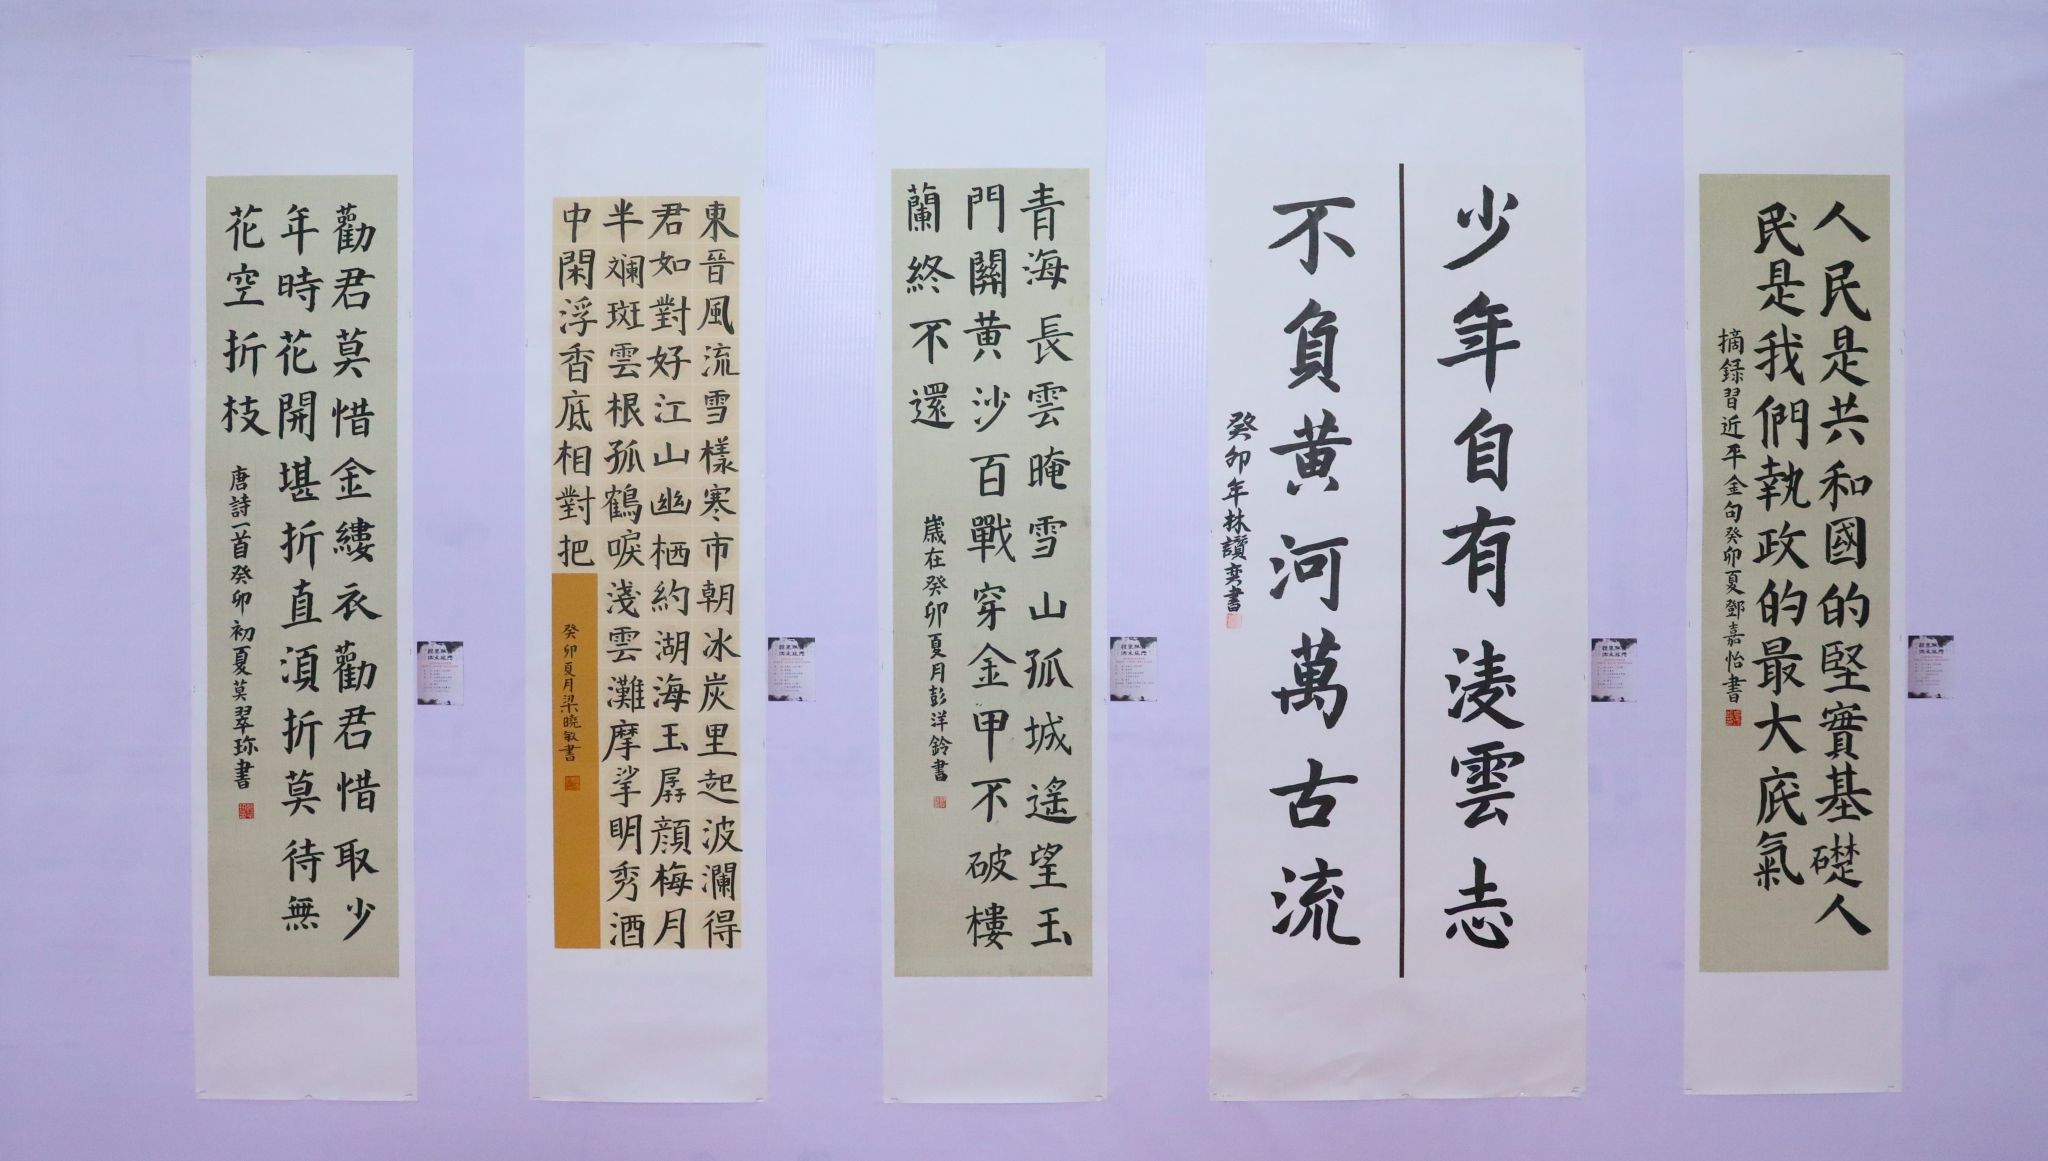 人民是共和國的堅實基礎人
民是我們執政的最大底氣
摘録習近平金句癸卯夏鄧嘉怡書
少年自有淩雲志
不負黃河萬古流
癸卯年林讚奕書
青海長雲晻雪山孤城遙望玉
門關黃沙百戰穿金甲不破樓
蘭終不還
歲在癸卯夏月彭洋鈴書
東晉風流雪樣寒市朝冰炭里起波瀾得
君如對好江山幽栖約湖海玉孱顏梅月
半斕斑雲根孤鶴唳淺雲灘摩挲明秀酒
中閑浮香底相對把
癸卯夏月梁曉敏書
勸君莫惜金縷衣勸君惜取少
年時花開堪折直須折莫待無
花空折枝
唐詩一首癸卯初夏莫翠珎書